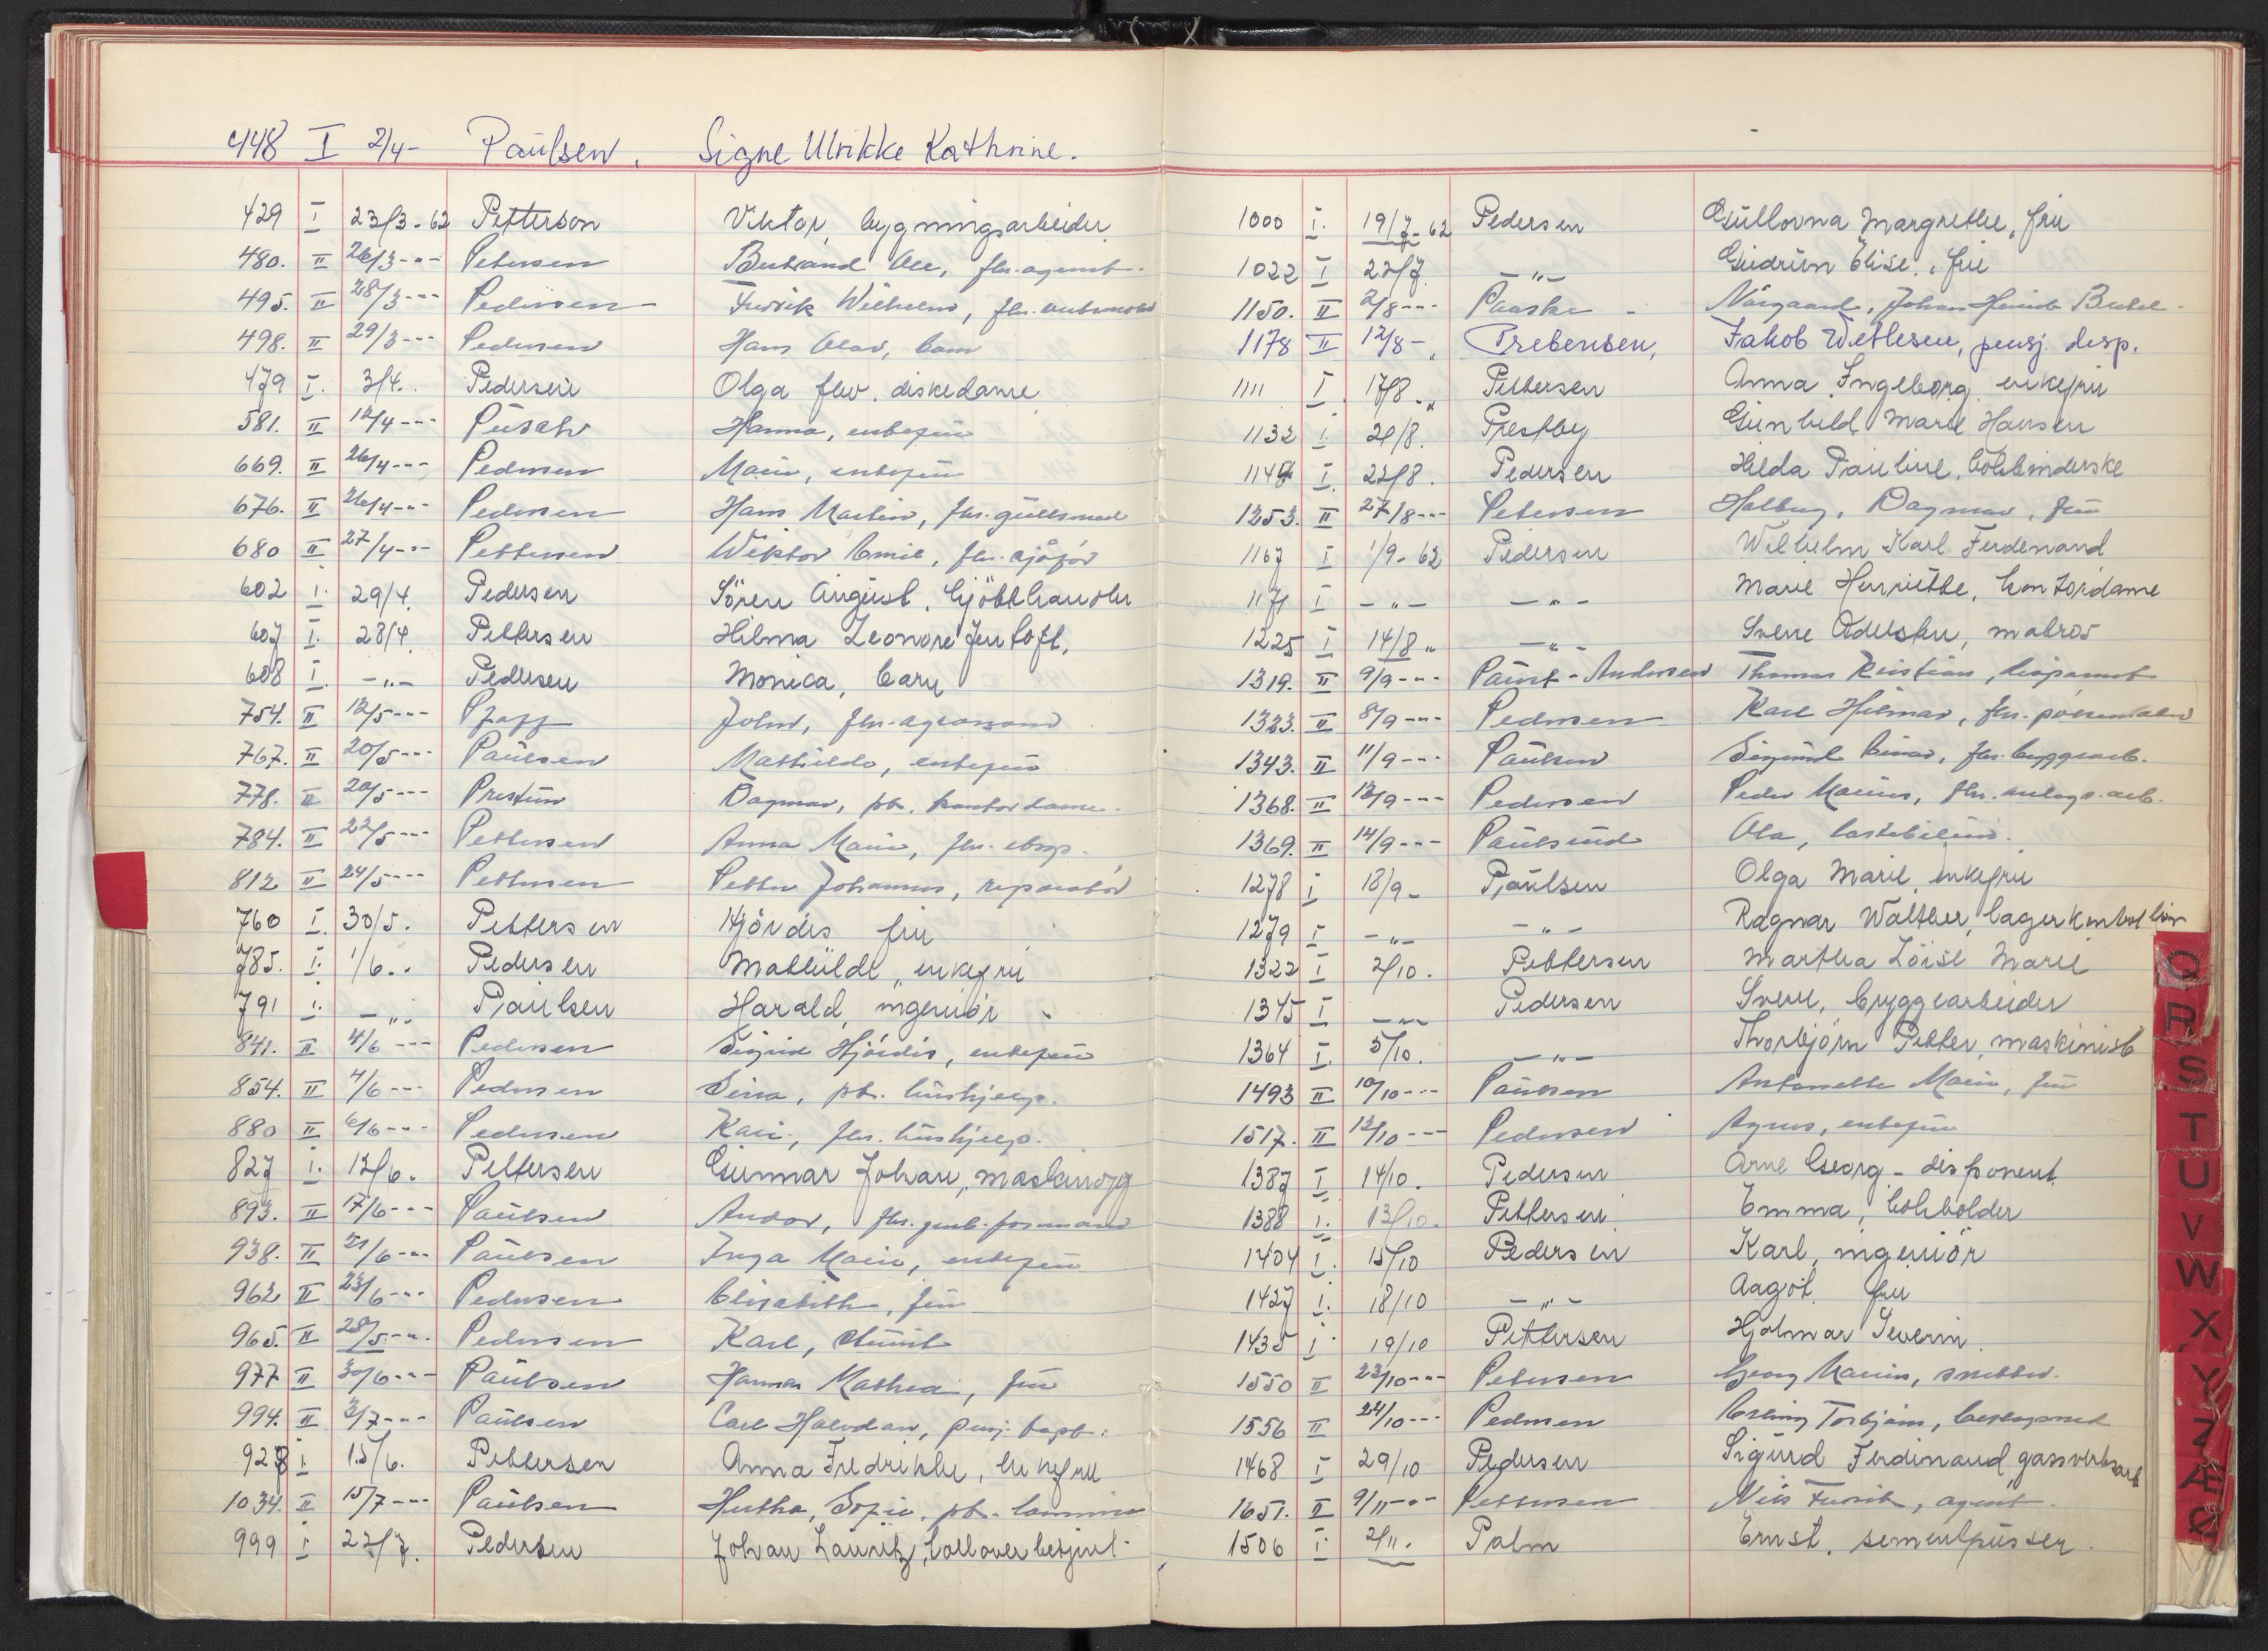 448 I 2/4- Paulsen. Signe Ulrikke Kathrine.
429 I 23/3-62 Petterson Viktor, bygningsarbeider
480. II 26/3-"- Petersen Bertrand Ole, fhv. agent.
495. II 28/3--- Pedersen Fredrik Wilhelm, fhv.
498. II 29/3--- Pedersen Hans Olav, barn
479 I. 3/4. Pedersen Olga fhv. diskedame
581. II 12/4--- Pusch Hanna, enkefru
669. II 26/4--- Pedersen Marie, enkefru
676. II 26/4-"- Pedersen Hans Martin, fhv. gullsmed
680 II 27/4--- Pettersen Wiktor Emil, fhv. sjåfør
602 I. 29/4. Pedersen Sören August, kjötthandler
607 I. 28/4. Pettersen Hilma Leonore Jentoft.
608 I. -"- Pedersen Monica, barn
754. II 12/5--- Pfaff John, fhv.
767. II 20/5--- Paulsen Mathilde, enkefru
778. II 20/5--- Dagmar, pb. kontordame.
784. II 22/5--- Pettersen Anna Marie, fhv. eksp.
812 II 24/5---- Pettersen Petter Johannes, reparatör
760 I. 30/5. Pettersen Hjördis fru
785. I. 1/6.. Pedersen Mathilde, enkefru
791 I. -"- Paulsen Harald, ingeniör
841. II 4/6 --- Pedersen Sigrid Hjördis, enkefru
854. II 4/6 --- Pedersen pb. hushjelp.
880 II 6/6--- Pedersen Kari, fhv. hushjelp.
827 I. 12/6. Pettersen Gunnar Johan,
893. II 17/6--- Paulsen Andor, fhv. formann
938. II 21/6-"- Paulsen Inga Marie, enkefru
962 II 23/6--- Pedersen Elisabeth, fru
965. II 28/5-"-. Pedersen Karl,
977 II 30/6--- Paulsen Hanna Mathea, fru
994. II 3/7--- Paulsen Carl Halvdan, pensj. kapt.
928 I 15/6. Pettersen Anna Fredrikke, enkefru
1034. II 15/7--- Paulsen Hertha, Sofie, pb.
999 I 22/7. Pedersen Johan Lauritz,
1000 I. 19/7-62 Pedersen Gullovna Margrethe, fru
1022 I 22/7. -"- Gudrun Elise, fru
1150. II 2/8--- Paaske - Nörgaard, Johan
1178 II 12/8- Prebensen, Jakob Wetlesen, pensj. disp.
1111 I 17/8 Pettersen Anna Ingeborg enkefru
1132 I. 21/8. Prestby Gunhild Marie Hansen
1144 I. 22/8. Pedersen Hilda Pauline, bokbinderske
1253. II 27/8--- Petersen Holberg, Dagmar, fru
1167 I 1/9-62 Pedersen Wilhelm Karl Ferdinand
1171 I -"- -"- Marie Henriette, kontordame
1225 I 14/8 " -"- Sverre Adelsten, matros
1319. II 9/9--- Andersen Thomas Kristian,
1323. II 8/9--- Pedersen Karl Hilmar, fhv.
1343. II 11/9--- Paulsen Sigurd Einar, fhv. byggearb.
1368. II 13/9--- Pedersen Peder Marius, fhv. anleggs.arb.
1369. II 14/9--- Ola,
1278 I 18/9- Paulsen Olga Marie, enkefru
1279 I -"- -"- Ragnar Walther,
1322 I 2/10. Pettersen Martha Löise Marie
1345 I -"- Pedersen Sverre, byggearbeider
1364 I. 5/10. -"- Thorbjørn Petter, maskinist
1493 II 10/10--- Paulsen Antonette Marie, fru
1517. II 12/10--- Pedersen Agnes, enkefru
1387 I 14/10. Pedersen Arne Georg - disponent
1388 I. 13/10. Pettersen Emma, bokholder
1404 I. 15/10 Pedersen Karl, ingeniör
1427 I. 18/10 -"- Aagot fru
1435 I 19/10 Pettersen Hjalmar Severin.
1550 II 23/10--- Petersen Georg Marius, snekker.
1556 II 24/10--- Pedersen Erling Torbjörn,
1468 I 29/10 Pedersen Sigurd Ferdinand gassverksarb
1651. II 9/11--- Pettersen Nils Fredrik, agent.
1506 I. 2/11. Palm Ernst, sementpusser.
Q
R
S
T
U
V
W
X
Y
Z
Æ
Ø